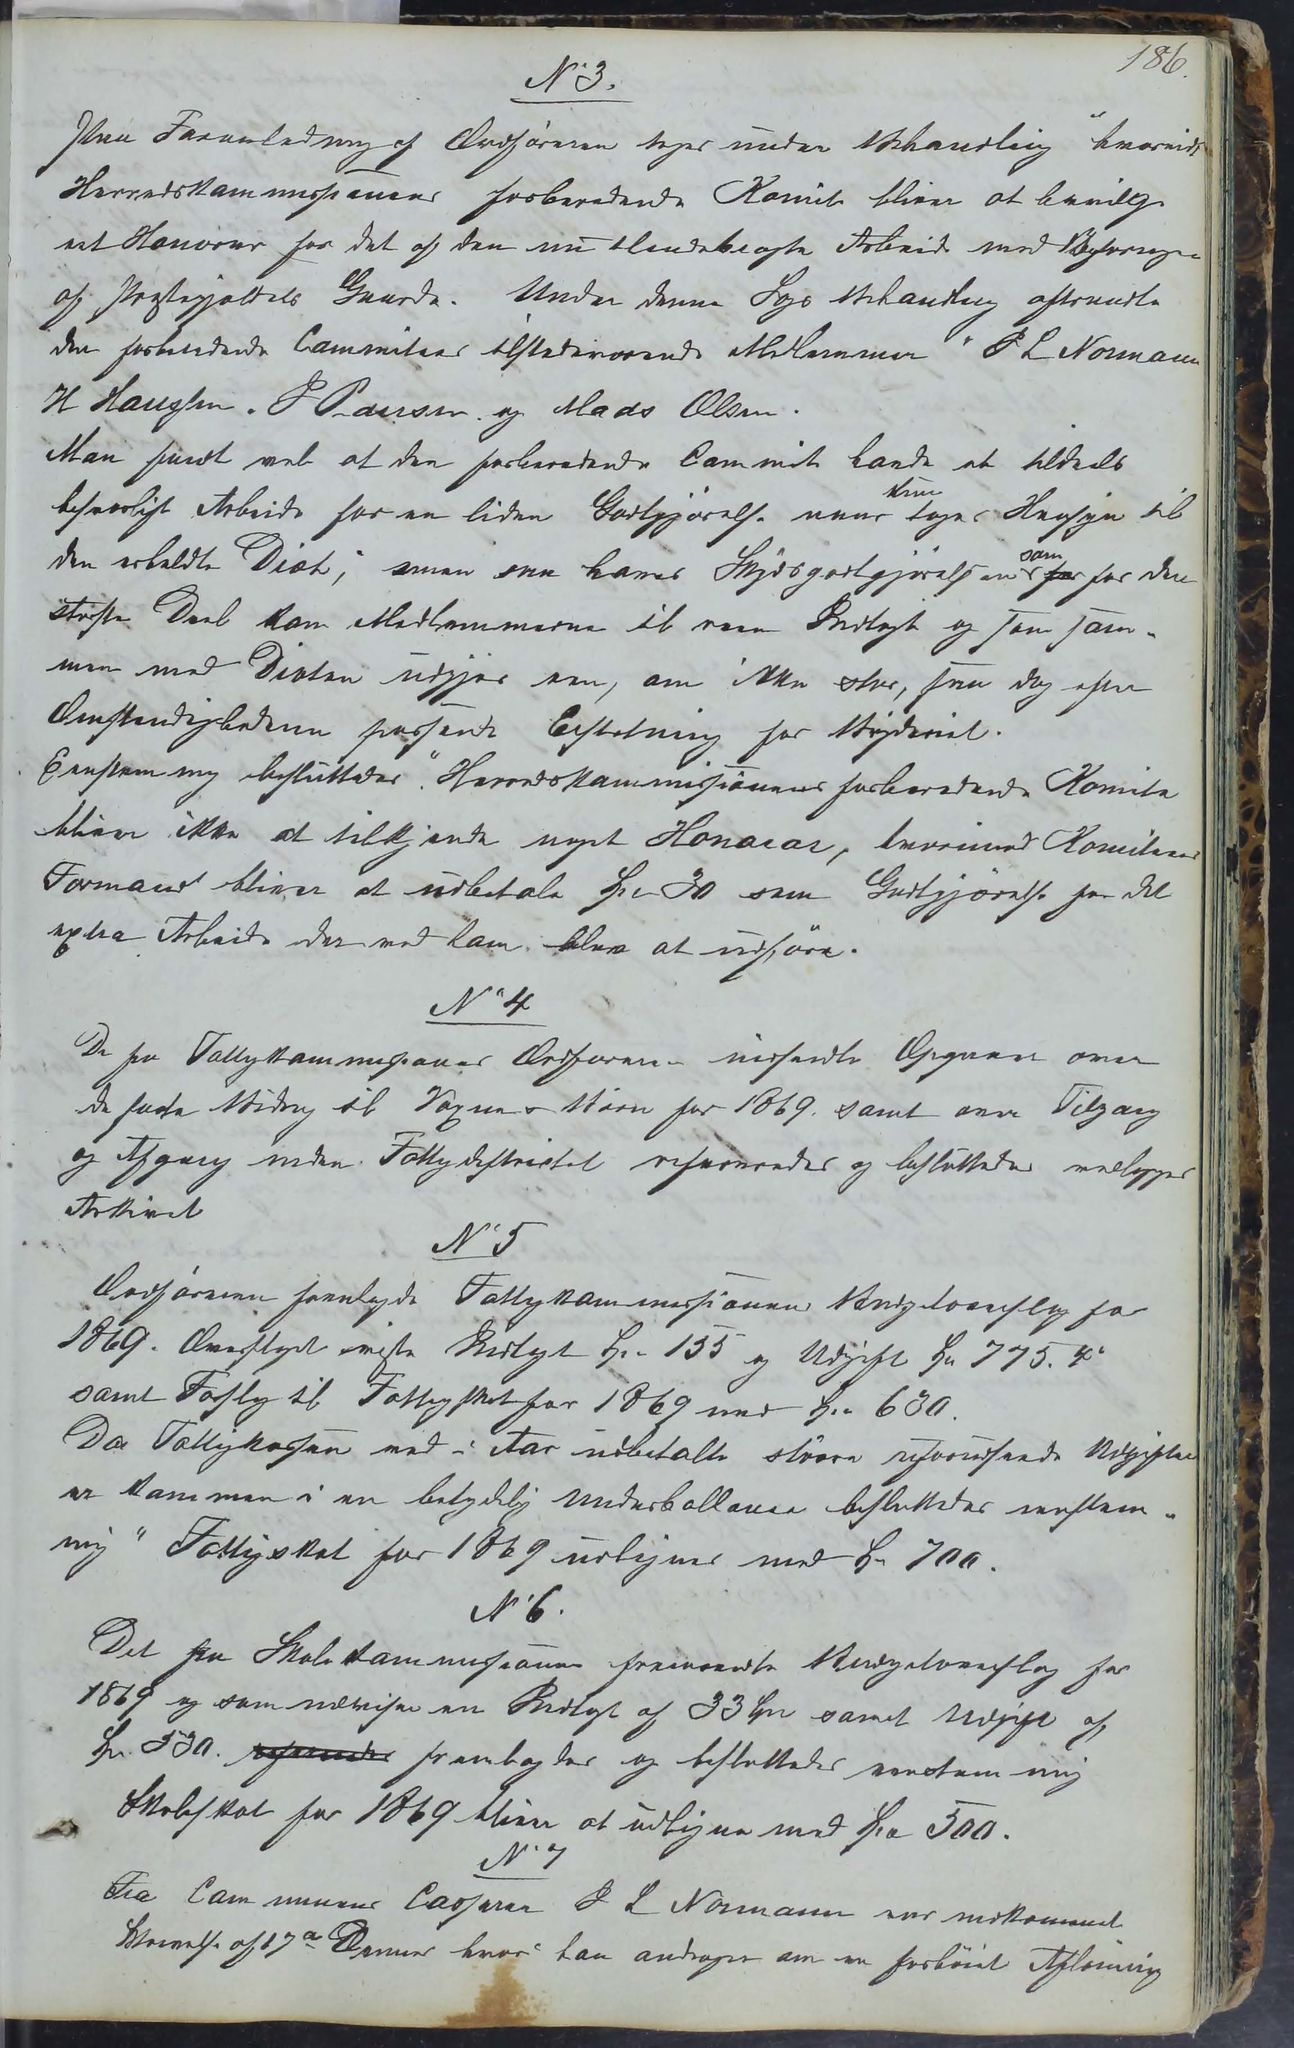 186.
No 3.
Paa Foranledning af Ordføreren toges under Behandling "hvorvidt
Herredskommissionens forberedende Komite bliver at bevilge
et Honorar for det af den nu tilendebragte Arbeide med
af Præstegjældets Gaarde. Under denne Sags Behandling aftraadte
den forberedende Committees tilstedeværende Medlemmer " P L Normann
H Haugen. P Paulsen og Mads Olsen.
Man fandt vel at den forberedende Committe havde et tildeels
besværligt Arbeide for en liden Godtgjørelse naar kun toges Hensyn til
den erholdte Diæt; men saa haves Skydsgodtgjørelsen som for den
største Deel kom Medlemmerne til reen Indtægt og som sam-
men med Diæten udgjør een, om ikke stor, saa dog efter
Omstændighederne passende Erstatning for Bryderiet.
Eenstemmig besluttedes "Herredskommissionens forberedende Komite
bliver ikke at tilkjende noget Honorar, hvorimod Komiteens
Formand bliver at udbetale Spd 30 som Godtgjørelse for det
extra Arbeide der ved ham blev at udføre.
No 4
De fra Fattigkommissionens Ordfører indsendte Opgaver over
de faste Bidrag til Voxne & Børn for 1869. samt over Tilgang
og Afgang inden Fattigdistriktet refereredes og besluttedes vedlægges
Arkivet
No 5
Ordføreren fremlagde Fattigkommissionens Budgetoverslag for
1869. Overslaget viste Indtægt Spd 155 og Udgift Spd 775. 4
samt Forslag til Fattigskat for 1869 med Spd 630.
Da Fattigkassen ved i Aar udbetalte større uforudseede Udgifter
er kommen i en betydelig Underballance besluttedes eenstem-
mig " Fattigskat for 1869 udlignes med Spd 700.
No 6.
Det fra Skolekommissionen fremsendte Budgetoverslag for
1869 og som udviser en Indtægt af 33 Spd samt Udgift af
Spd 530. refereredes fremlagdes og besluttedes eenstemmig
Skoleskat for 1869 bliver at udligne med Spd 500.
No 7
Fra Communens Casserer P L Normann var indkommet
Skrivelse af 17de Dennes hvori han andrager om en forhøiet Aflønning